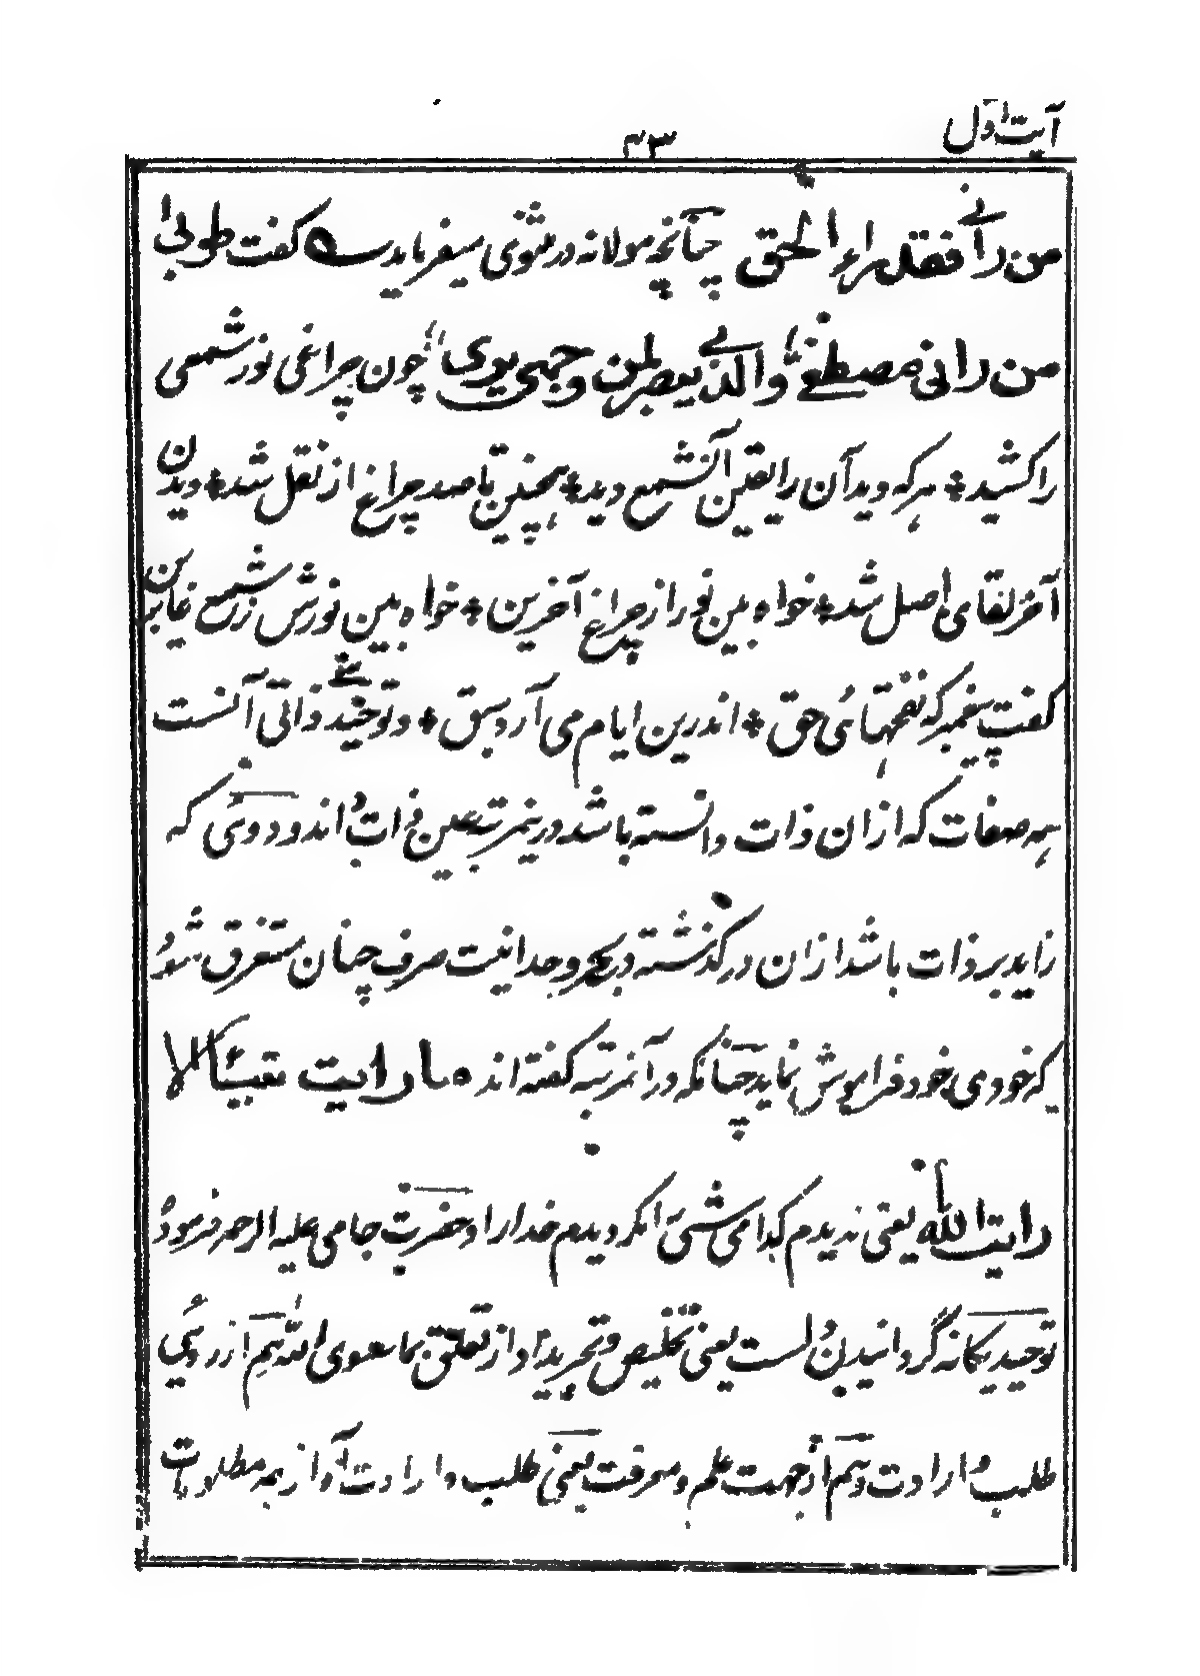 آیت اول
۴۳
من رآنی فقد راء الحق چنانچه مولانه در مثنوی میفرماید ؎ گفت طوبیٰ
من رانی مصطفےٰ والذی یبصر لمن وجهی یری چون چراغی نور شمعی
را کشید * هر که دید آن را یقین آنشمع دید * همچنین تا صد چراغ از نقل شد * دیدن
آخر لقای اصل شد * خواه بین نور از چراغ آخرین * خواه بین نورش ز شمع غابرین
گفت پیغمبر که نفحتهائی حق * اندرین ایام می آرد سبق * و توحید ذاتی آنست
همه صفات که ازان ذات دانسته باشد درینمرتبه عین ذات اند و دوئی که
زاید بر ذات باشد ازان در گذشته در بحر وحدانیت صرف چنان مستغرق شود
که خودی خود فراموش نماید چنانکه در آنمرتبه گفته اند ما رایت شیئا الا
رایت الله یعنی ندیدم کدامی شئ مگر دیدم خدا را و حضرت جامی علیه الرحمه فرموده
توحید یگانه گردانیدن دلست یعنی تخلیص و تجرید او از تعلق بما سوی الله هم از روئی
طلب و ارادت و هم از جهت علم و معرفت یعنی طلب و ارادت او از همه مطلوبات